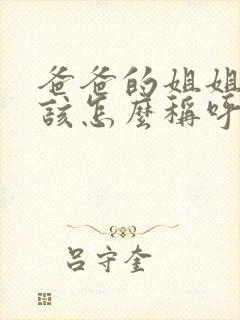 爸爸的姐姐
該怎麼稱呼
呂守奎